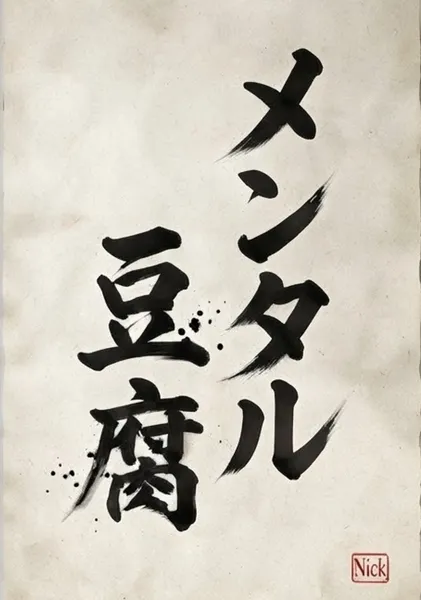 メンタル
豆腐
Nick